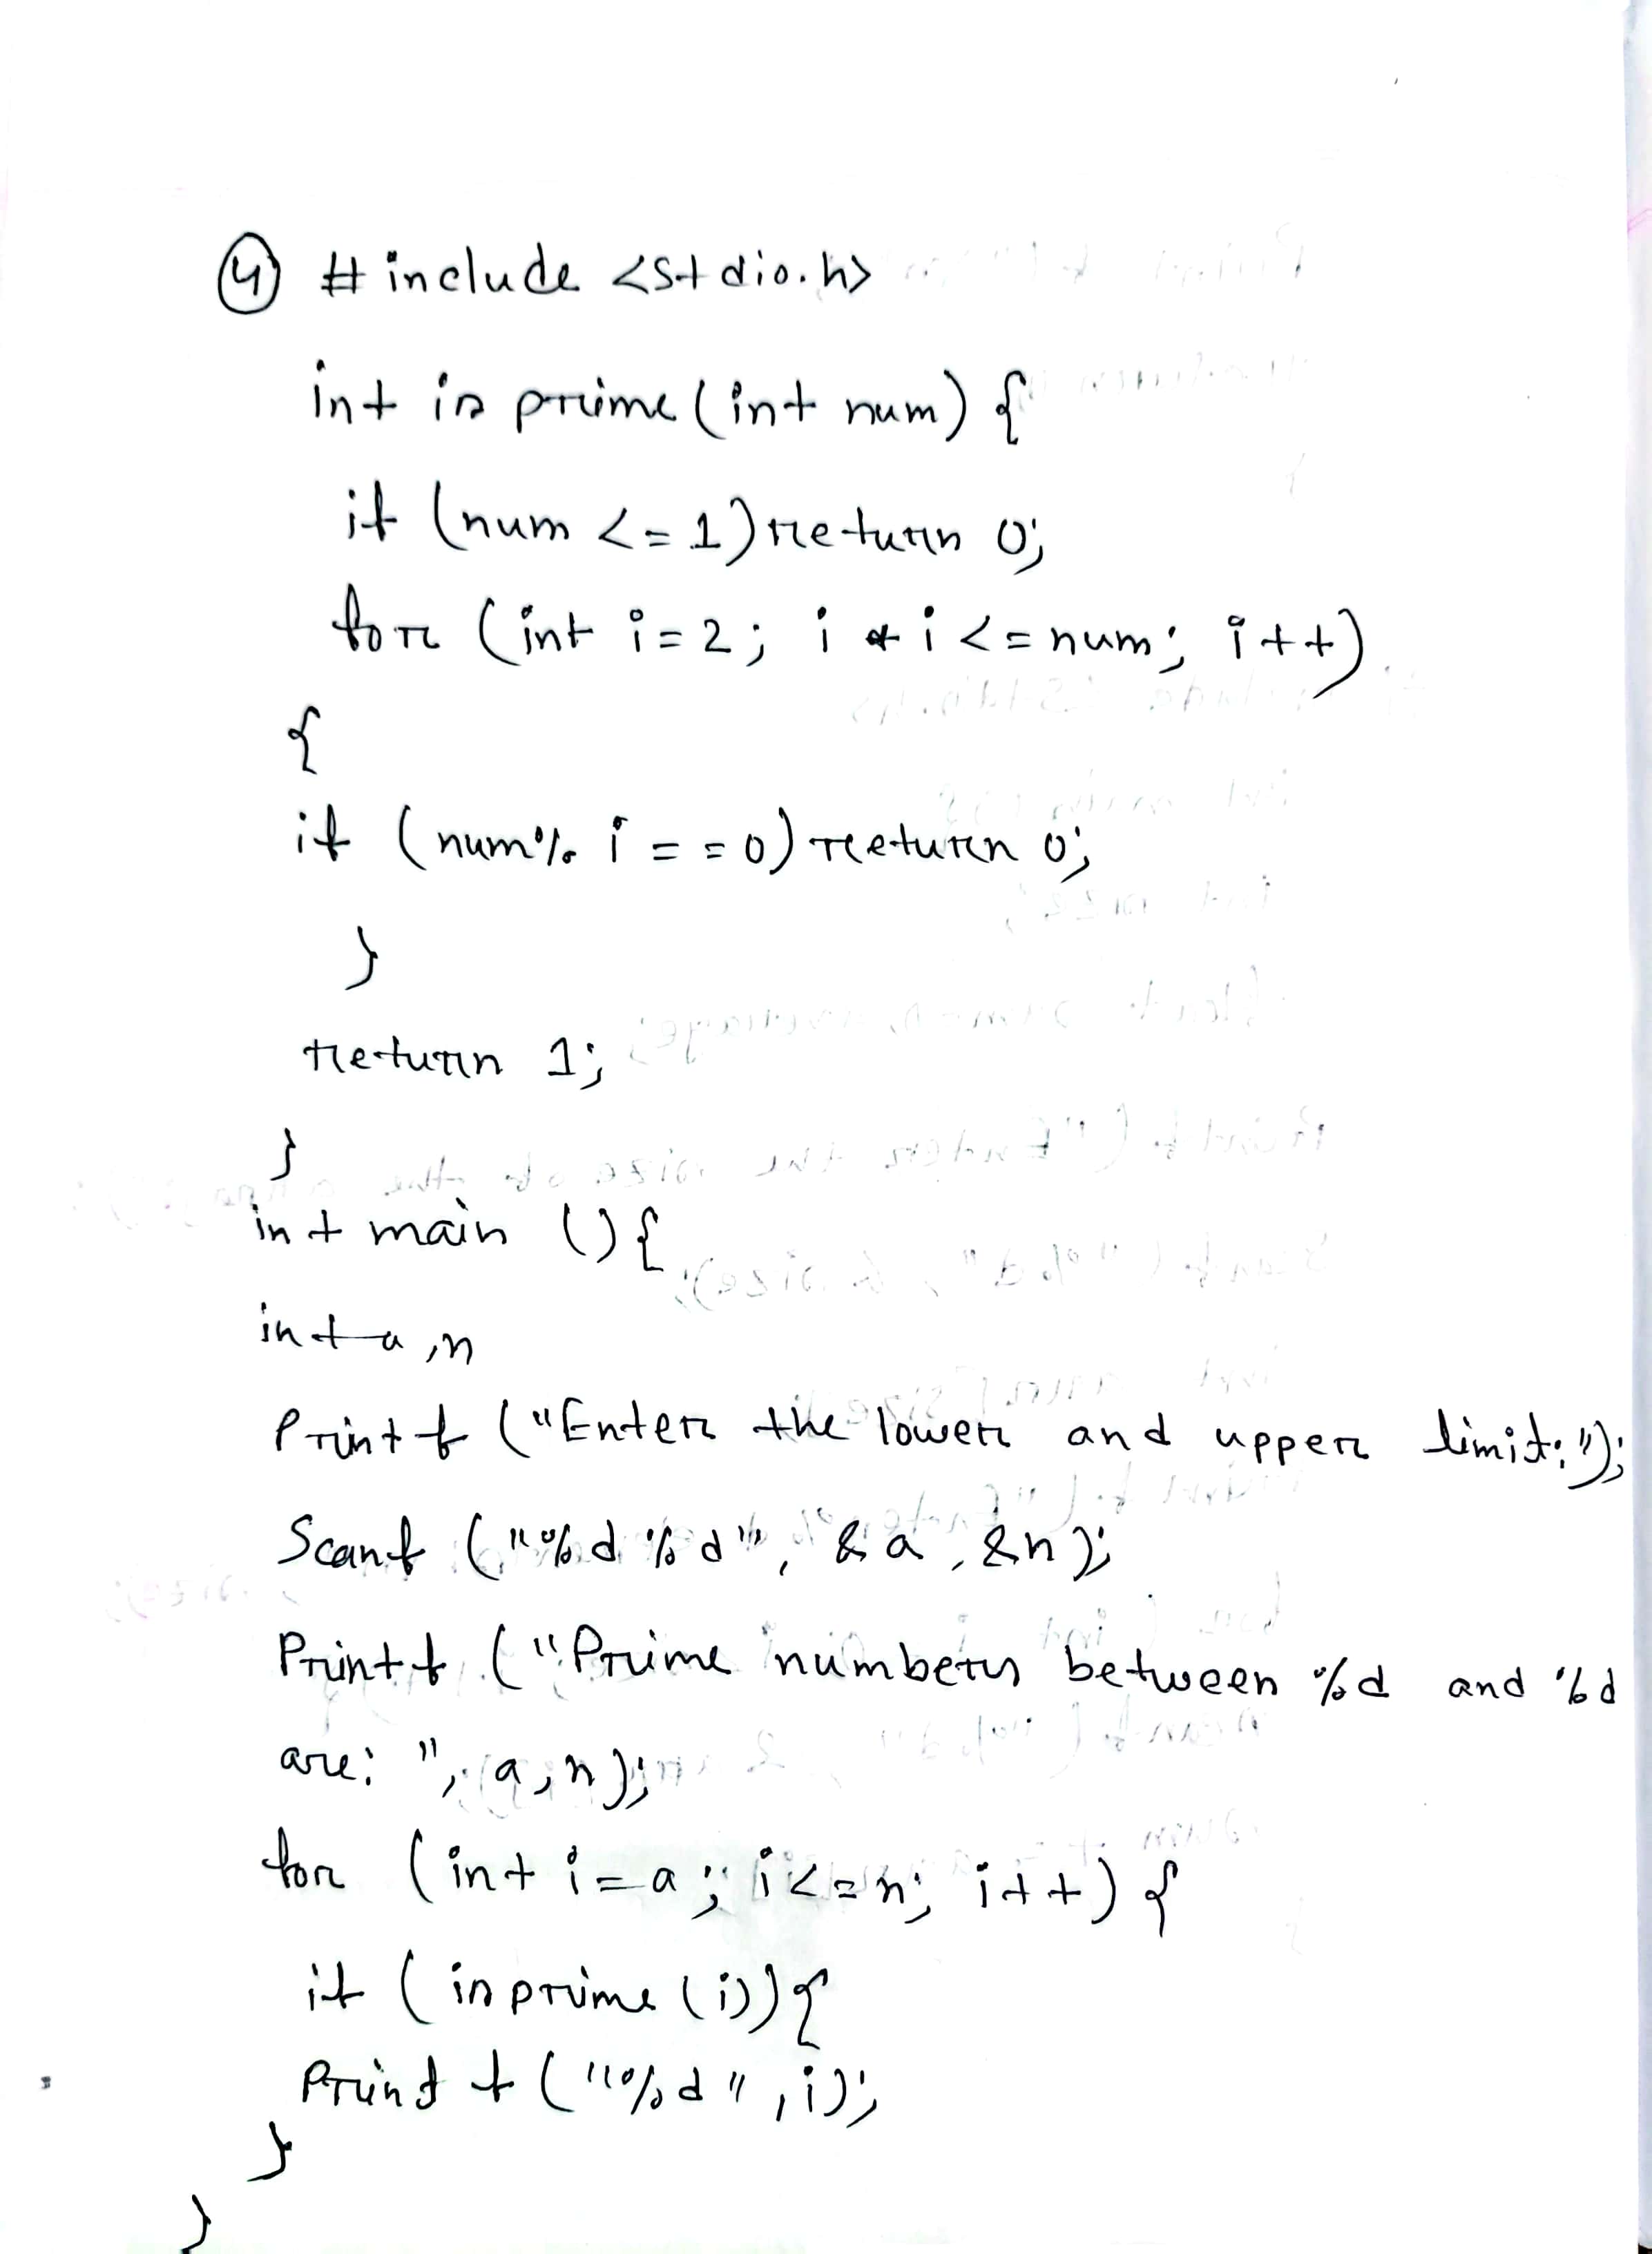 4 #include <stdio.h>
int is prime (int num) {
if (num <= 1) return 0;
for (int i = 2; i * i <= num; i++)
{
if (num % i == 0) return 0;
}
return 1;
}
int main () {
int a, n
Printf ("Enter the lower and upper limit:");
Scanf ("%d %d", &a, &n);
Printf ("Prime numbers between %d and %d
are: ", a, n);
for (int i = a; i <= n; i++) {
if (isprime (i)) {
Printf ("%d", i);
}
}